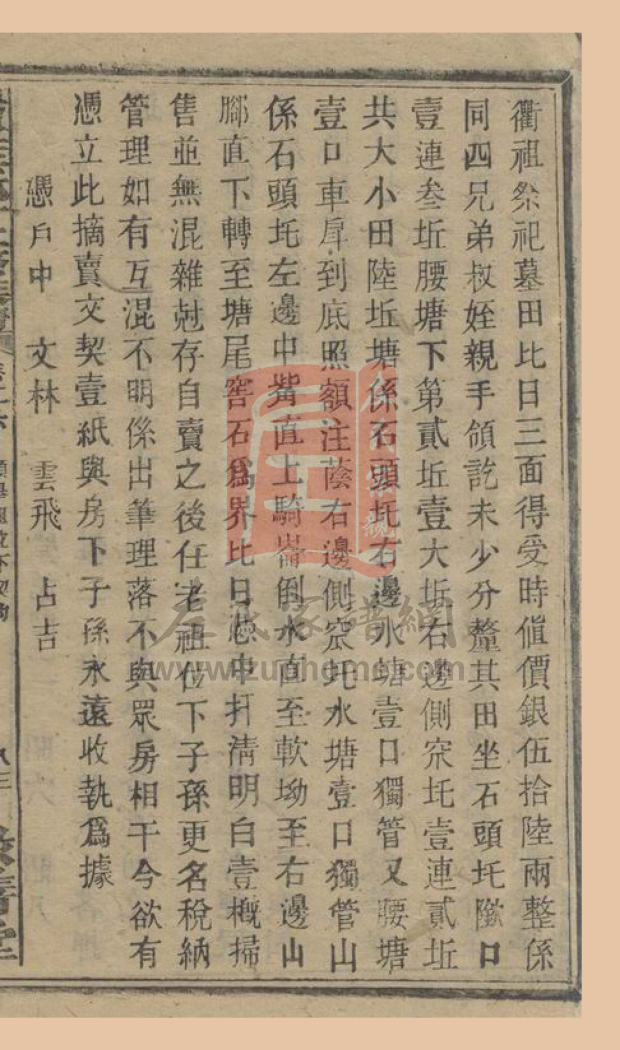 衢祖祭祀墓田比日三面得受時値價銀伍拾陸兩整係
同四兄弟叔姪親手領訖未少分釐其田坐石頭圫隘口
壹連叁坵腰塘下第貳坵壹大坵右邊側窊圫壹連貳坵
共大小田陸坵塘係石頭圫右邊水塘壹口獨管又腰塘
壹口車戽到底照額注蔭右邊側窊圫水塘壹口獨管山
係石頭圫左邊中嘴直上騎崙倒水直至軟坳至右邊山
腳直下轉至塘尾窖石爲界比日憑中扦淸明白壹槪掃
售並無混雜尅存自賣之後任老祖位下子孫更名稅納
管理如有互混不明係出筆理落不與眾房相干今欲有
憑立此摘賣文契壹紙與房下子孫永遠收執爲據
憑戶中 文林 雲飛 占吉
左氏家譜網
www.zuohome.com